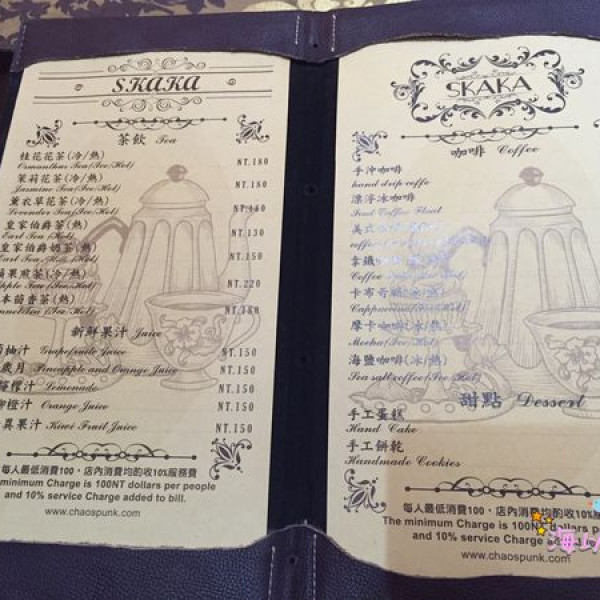 SKAKA
茶飲 Tea
桂花花茶(冷/熱) NT.180
Osmanthus Tea(Ice/Hot)
茉莉花茶(冷/熱) NT.180
Jasmine Tea(Ice/Hot)
薰衣草花茶(冷/熱)
Levender Tea(Ice/Hot)
皇家伯爵茶(熱) NT.130
Earl Tea (Hot)
皇家伯爵奶茶(熱) NT.150
Earl Tea
蘋果煎茶(冷/熱) NT.220
Apple Tea(Ice/Hot)
本茴香茶(熱) NT.180
Tea (Ice/Hot)
新鮮果汁 Juice
柚汁 Grapefruite Juice NT.150
歲月 Pineapple and Orange Juice NT.150
檸檬汁 Lemonade NT.150
柳橙汁 Orange Juice NT.150
異果汁 Kiwi Fruit Juice NT.150
每人最低消費100、店內消費均酌收10%服務費
minimum Charge is 100NT dollars per people
and 10% service Charge added to bill.
www.chaospunk.com
SKAKA
咖啡 Coffee
手沖咖啡
hand drip coffe
漂浮冰咖啡
Iced Coffee Float
美式
拿鐵
Coffee
卡布奇諾(冰/熱)
Cappuccino(Ice/Hot)
摩卡咖啡(冰/熱)
Mocha(Ice/Hot)
海鹽咖啡(冰/熱)
Sea salt coffee(Ice/Hot)
甜點 Dessert
手工蛋糕
Hand Cake
手工餅乾
Handmade Cookies
每人最低消費100、店內消費均酌收10%服
The minimum Charge is 100NT dollars per
and 10% service Charge added to bill.
www.chaospunk.com